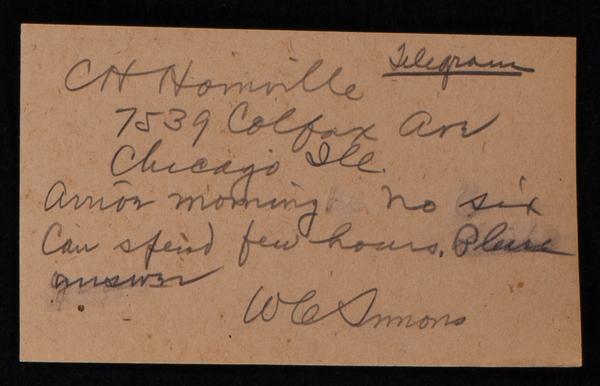 Telegram
CH Hornville
7539 Colfax Ave
Chicago Ill.
Arrive morning no six
Can spend few hours. Please
answer
WC Simons